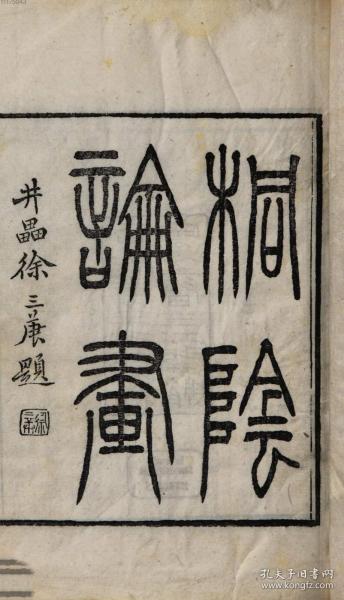 桐陰
論畫
井罍徐三庚題
孔夫子旧书网
www.kongfz.com